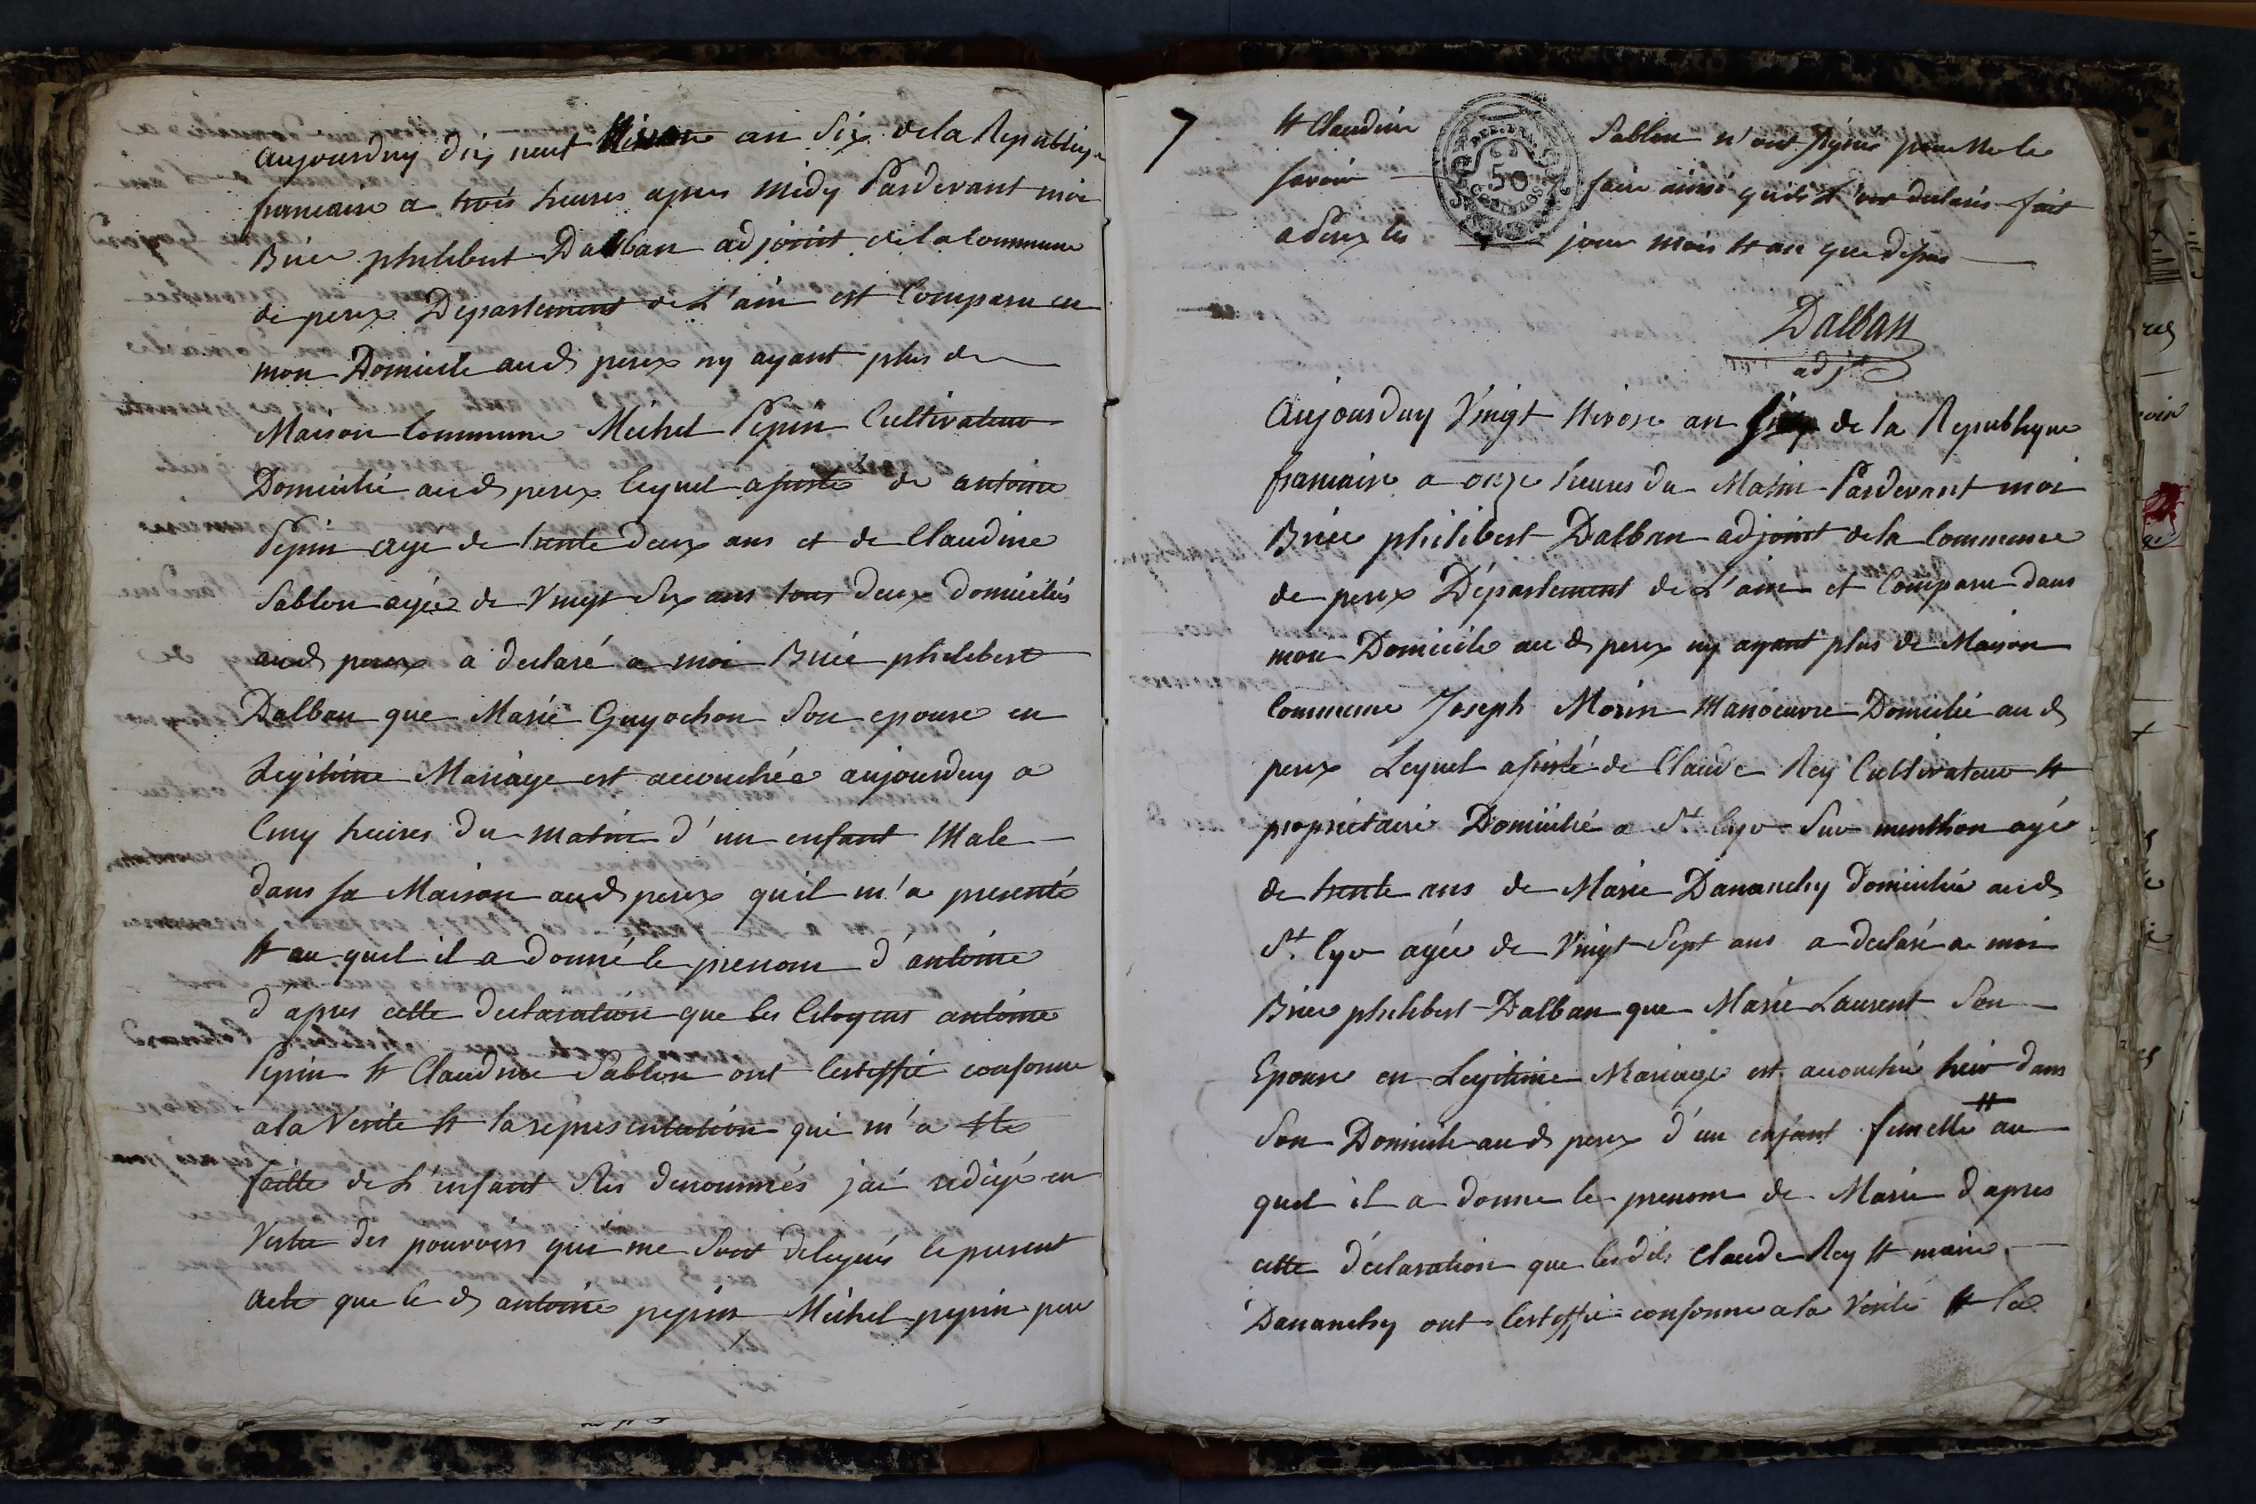 aujourduy dix neuf Nivose an Six de la Republique
francaise a trois heures apres midy Pardevant moi
Brice philibert Dalban adjoint de la Commune
de perex Departement de L'ain est Comparu en
mon Domicile aud perex ny ayant plus de
Maison Commune Michel Pepin Cultivateur
Domicilié aud perex lequel assisté de antoine
Pepin agé de trente deux ans et de Claudine
Sablon agée de Vingt Six ans tous deux domiciliés
aud perex a declaré a moi Brice philibert
Dalban que Marie Guyochon Son epouse en
Legitime Mariage est accouchée aujourduy a
Cinq heures du matin d'un enfant Male
dans sa Maison aud perex quil m'a presenté
et au quel il a donné le prenom d'antoine
d'apres cette declaration que les Citoyens antoine
Pepin et Claudine Sablon ont Certiffié conforme
a la Verite et la representation qui m'a ete
faitte de L'enfant Sus denommés j'ai redigé en
Vertu des pouvoirs qui me Sont delegués le present
acte que le d antoine pepin Michel pepin pere
7
et Claudine Sablon n'ont signé pour ne le
savoir faire ainsi quils L'ont declarés fait
a perex les jour mois et an que dessus
50
Dalban
adjt
Aujourduy Vingt Nivose an Six de la Republique
francaise a onze heures du Matin Pardevant moi
Brice philibert Dalban adjoint de la Commune
de perex Département de L'ain et Comparu dans
mon Domicile aud perex ny ayant plus de Maison
Commune Joseph Morin Manoeuvre Domicilié aud
perex Lequel assisté de Claude Rey Cultivateur et
proprietaire Domicilié a St Cyr Sur menthon agé
de trente ans de Marie Dananchy domiciliée aud
St Cyr agée de Vingt Sept ans a declaré a moi
Brice philibert Dalban que Marie Laurent Son
Epouse en Legitime Mariage est accouchée hier dans
Son Domicile aud perex d'un enfant femelle au
quel il a donne le prenom de Marie d'apres
cette déclaration que lesdits Claude Rey et marie
Dananchy ont Certiffié conforme a la Verité et la